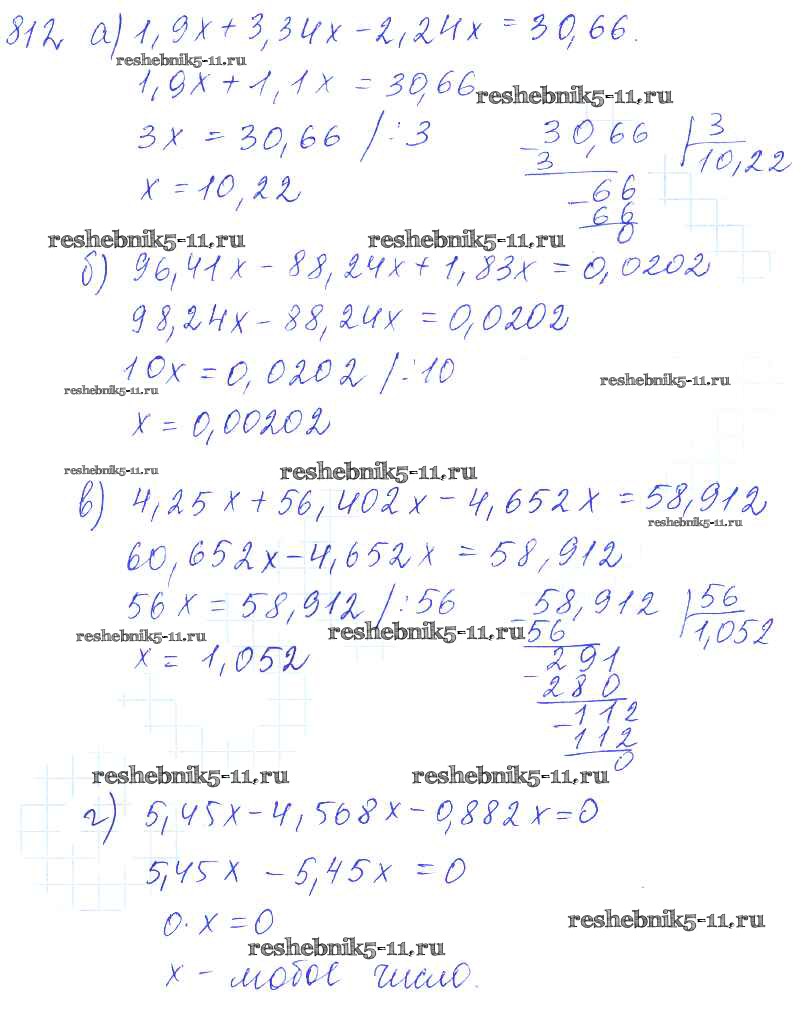 812 а) 1,9x + 3,34x - 2,24x = 30,66.
reshebnik5-11.ru
1,9x + 1,1x = 30,66
reshebnik5-11.ru
3x = 30,66 /:3
30,66 3
- 3 10,22
x = 10,22
- 66
66
0
reshebnik5-11.ru reshebnik5-11.ru
б) 96,41x - 88,24x + 1,83x = 0,0202
98,24x - 88,24x = 0,0202
10x = 0,0202 /:10
reshebnik5-11.ru reshebnik5-11.ru
x = 0,00202
reshebnik5-11.ru reshebnik5-11.ru
в) 4,25x + 56,402x - 4,652x = 58,912
reshebnik5-11.ru
60,652x - 4,652x = 58,912
56x = 58,912 /:56
- 58,912 56
56 1,052
reshebnik5-11.ru reshebnik5-11.ru
x = 1,052
- 291
280
- 112
112
0
reshebnik5-11.ru reshebnik5-11.ru
г) 5,45x - 4,568x - 0,882x = 0
5,45x - 5,45x = 0
0·x = 0
reshebnik5-11.ru
reshebnik5-11.ru
x - любое число.